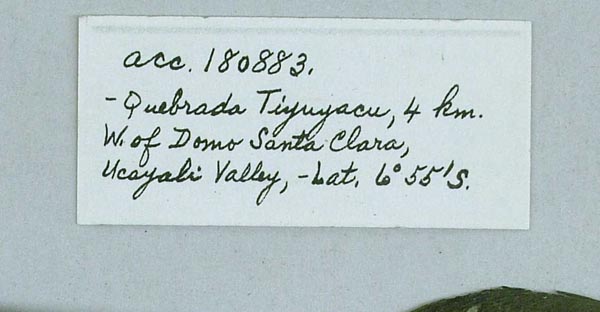 acc. 180883.
- Quebrada Tiyuyacu, 4 km.
W. of Domo Santa Clara,
Ucayali Valley, - Lat. 6° 55' S.